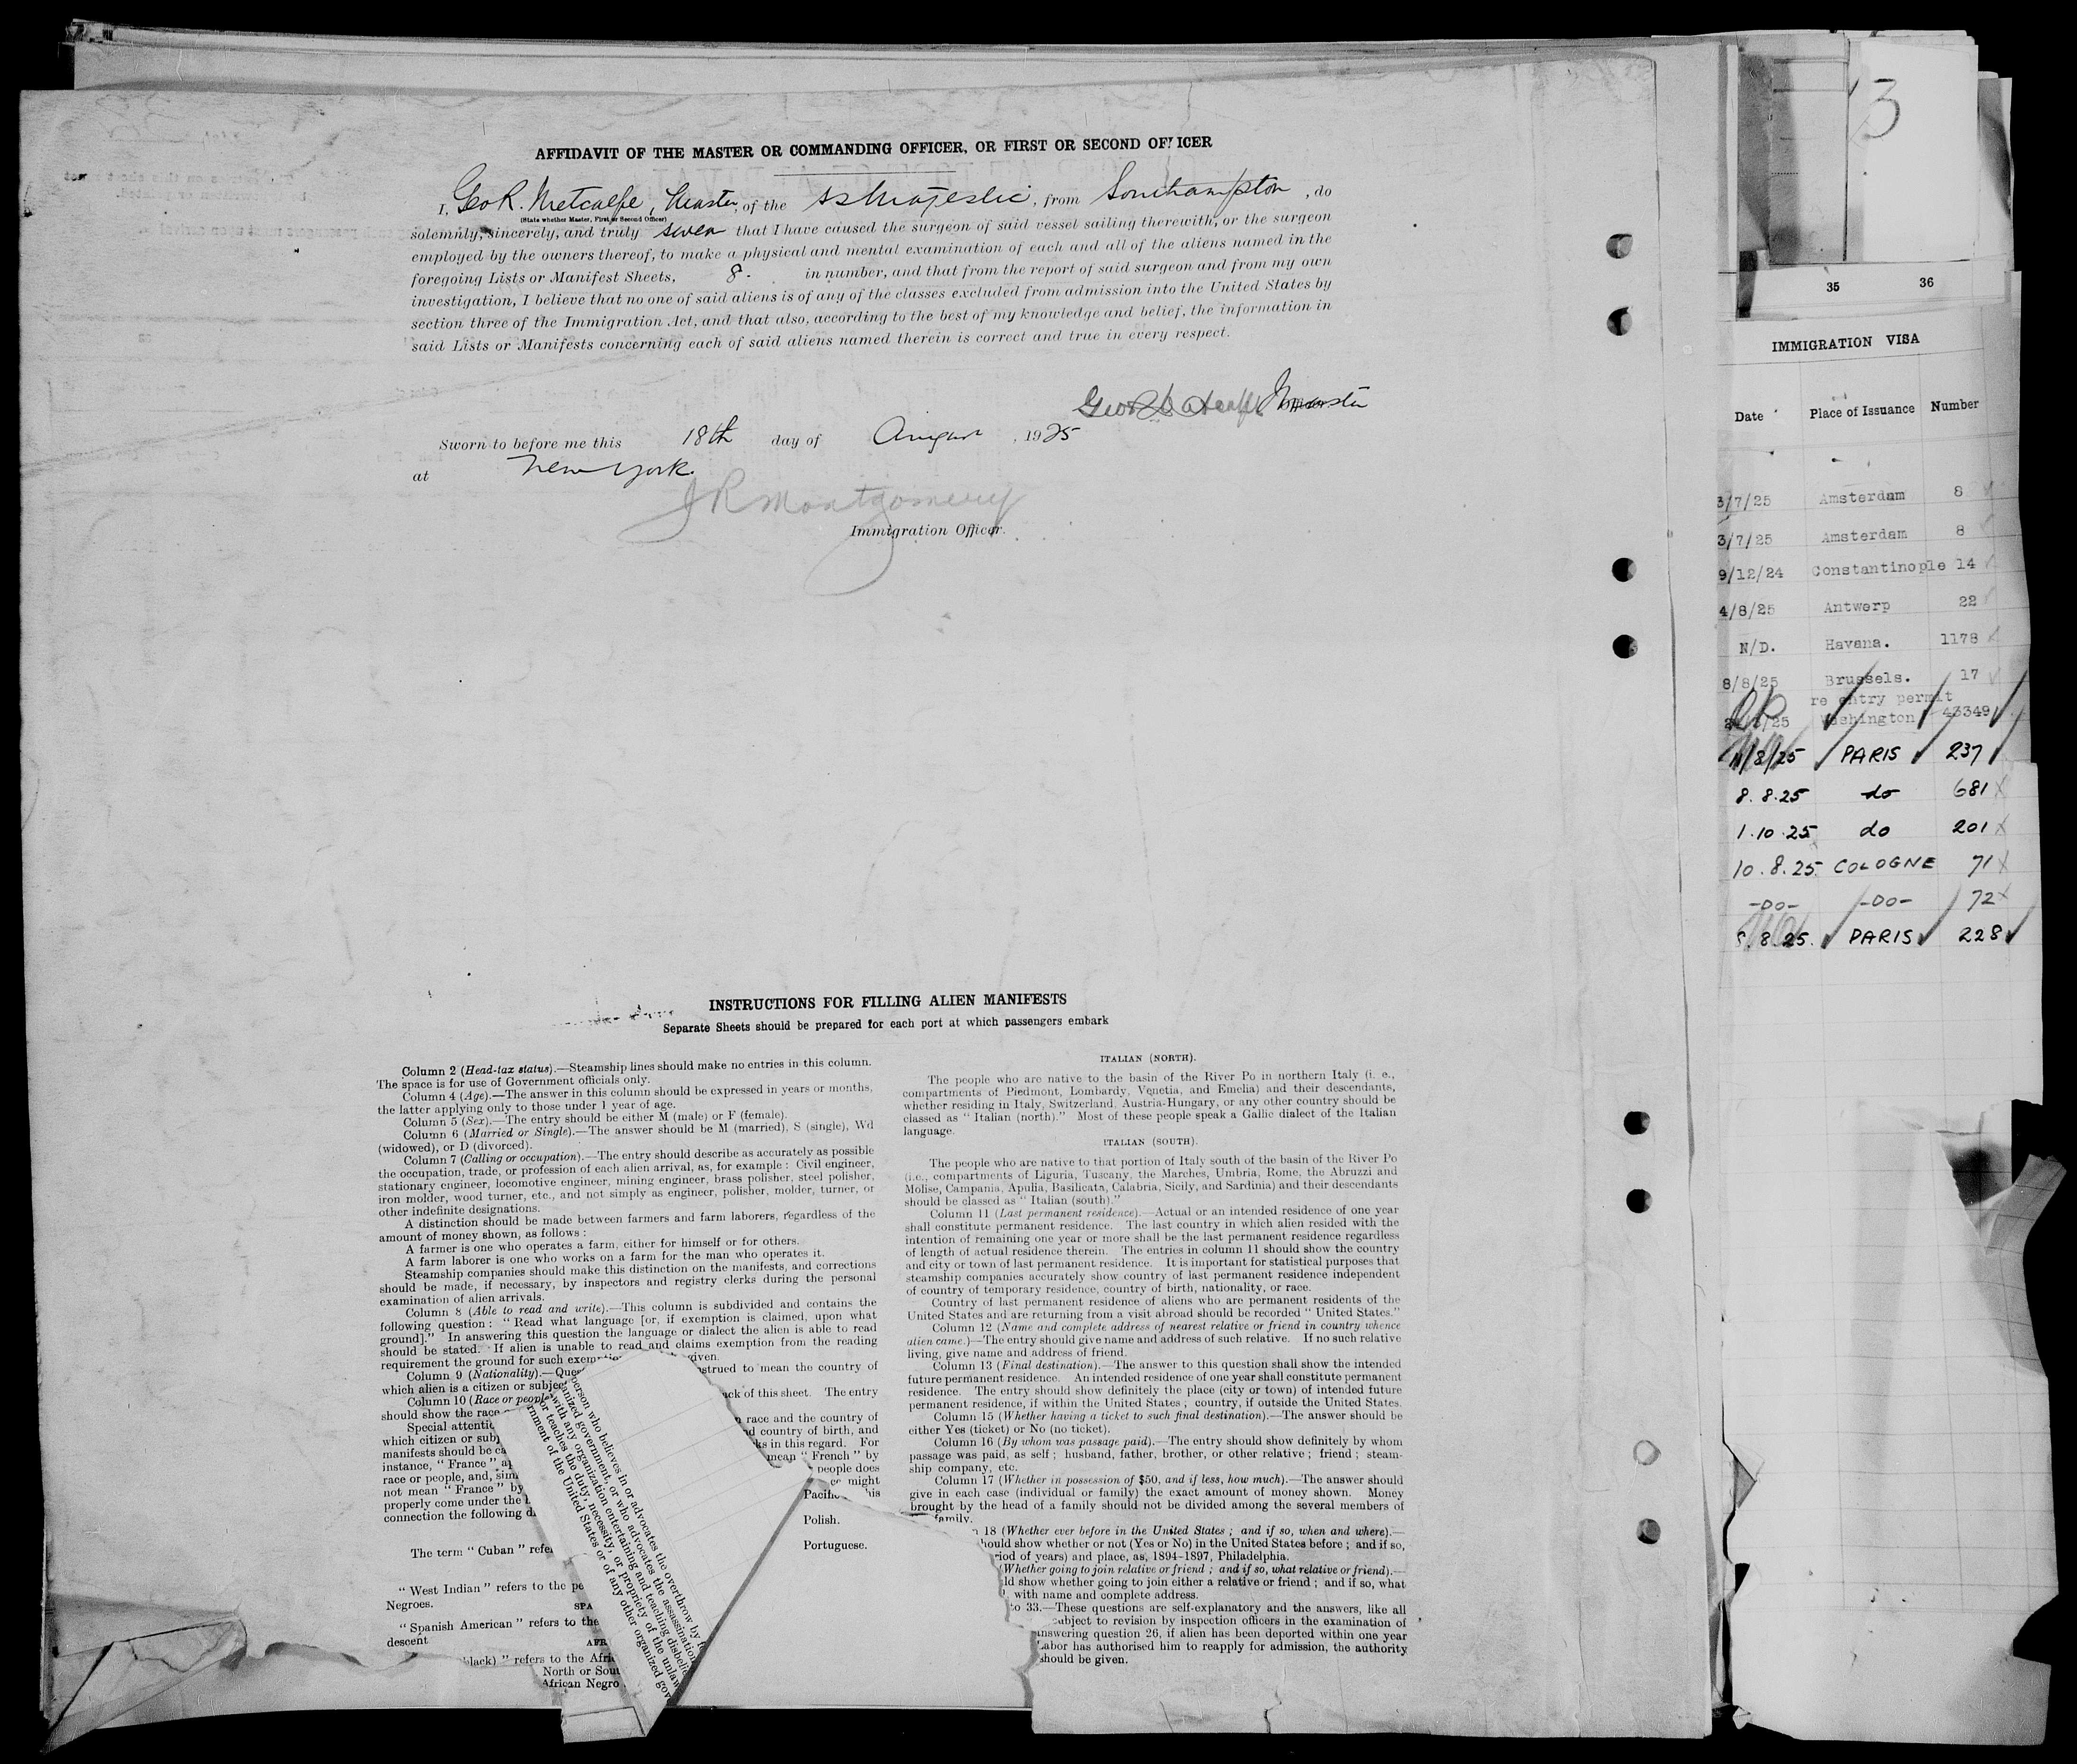 AFFIDAVIT OF THE MASTER OR COMMANDING OFFICER, OR FIRST OR SECOND OFFICER
I, Geo R. Metcalfe, Master, of the SS Majestic, from Southampton, do
(State whether Master, First or Second Officer)
solemnly, sincerely, and truly swear that I have caused the surgeon of said vessel sailing therewith, or the surgeon
employed by the owners thereof, to make a physical and mental examination of each and all of the aliens named in the
foregoing Lists or Manifest Sheets, 8. in number, and that from the report of said surgeon and from my own
investigation, I believe that no one of said aliens is of any of the classes excluded from admission into the United States by
section three of the Immigration Act, and that also, according to the best of my knowledge and belief, the information in
said Lists or Manifests concerning each of said aliens named therein is correct and true in every respect.
Geo R Metcalfe Master
Sworn to before me this 18th day of August, 1925
at New York.
J R Montgomery
Immigration Officer.
INSTRUCTIONS FOR FILLING ALIEN MANIFESTS
Separate Sheets should be prepared for each port at which passengers embark
Column 2 (Head-tax status).—Steamship lines should make no entries in this column.
The space is for use of Government officials only.
Column 4 (Age).—The answer in this column should be expressed in years or months,
the latter applying only to those under 1 year of age.
Column 5 (Sex).—The entry should be either M (male) or F (female).
Column 6 (Married or Single).—The answer should be M (married), S (single), Wd
(widowed), or D (divorced).
Column 7 (Calling or occupation).—The entry should describe as accurately as possible
the occupation, trade, or profession of each alien arrival, as, for example : Civil engineer,
stationary engineer, locomotive engineer, mining engineer, brass polisher, steel polisher,
iron molder, wood turner, etc., and not simply as engineer, polisher, molder, turner, or
other indefinite designations.
A distinction should be made between farmers and farm laborers, regardless of the
amount of money shown, as follows :
A farmer is one who operates a farm, either for himself or for others.
A farm laborer is one who works on a farm for the man who operates it.
Steamship companies should make this distinction on the manifests, and corrections
should be made, if necessary, by inspectors and registry clerks during the personal
examination of alien arrivals.
Column 8 (Able to read and write).—This column is subdivided and contains the
following question : " Read what language [or, if exemption is claimed, upon what
ground]." In answering this question the language or dialect the alien is able to read
should be stated. If alien is unable to read and claims exemption from the reading
requirement the ground for such given.
Column 9 (Nationality).— strued to mean the country of
which alien is a citizen or
Column 10 (Race or people of this sheet. The entry
should show the race
Special race and the country of
which citizen or country of birth, and
manifests should be in this regard. For
instance, " France " mean " French " by
race or people, and, people does
not mean " France " by might
properly come under the Pacific
connection the following
Polish.
Portuguese.
The term " Cuban "
" West Indian " refers to the
Negroes.
" Spanish American " refers to the
descent
black) " refers to the
North or
African Negro
person who believes in or advocates the overthrow by
government, or who advocates the assassination
with any organization entertaining and teaching
or teaches the duty, necessity, or propriety of the
of the United States or of any other organized
ITALIAN (NORTH).
The people who are native to the basin of the River Po in northern Italy (i. e.,
compartments of Piedmont, Lombardy, Venetia, and Emelia) and their descendants,
whether residing in Italy, Switzerland, Austria-Hungary, or any other country should be
classed as " Italian (north)." Most of these people speak a Gallic dialect of the Italian
language.
ITALIAN (SOUTH).
The people who are native to that portion of Italy south of the basin of the River Po
(i.e., compartments of Liguria, Tuscany, the Marches, Umbria, Rome, the Abruzzi and
Molise, Campania, Apulia, Basilicata, Calabria, Sicily, and Sardinia) and their descendants
should be classed as " Italian (south)."
Column 11 (Last permanent residence).—Actual or an intended residence of one year
shall constitute permanent residence. The last country in which alien resided with the
intention of remaining one year or more shall be the last permanent residence regardless
of length of actual residence therein. The entries in column 11 should show the country
and city or town of last permanent residence. It is important for statistical purposes that
steamship companies accurately show country of last permanent residence independent
of country of temporary residence, country of birth, nationality, or race.
Country of last permanent residence of aliens who are permanent residents of the
United States and are returning from a visit abroad should be recorded " United States."
Column 12 (Name and complete address of nearest relative or friend in country whence
alien came.)—The entry should give name and address of such relative. If no such relative
living, give name and address of friend.
Column 13 (Final destination).—The answer to this question shall show the intended
future permanent residence. An intended residence of one year shall constitute permanent
residence. The entry should show definitely the place (city or town) of intended future
permanent residence, if within the United States ; country, if outside the United States.
Column 15 (Whether having a ticket to such final destination).—The answer should be
either Yes (ticket) or No (no ticket).
Column 16 (By whom was passage paid).—The entry should show definitely by whom
passage was paid, as self ; husband, father, brother, or other relative ; friend ; steam-
ship company, etc.
Column 17 (Whether in possession of $50, and if less, how much).—The answer should
give in each case (individual or family) the exact amount of money shown. Money
brought by the head of a family should not be divided among the several members of
family.
18 (Whether ever before in the United States ; and if so, when and where).—
should show whether or not (Yes or No) in the United States before ; and if so,
of years) and place, as, 1894-1897, Philadelphia.
(Whether going to join relative or friend ; and if so, what relative or friend).—
show whether going to join either a relative or friend ; and if so, what
with name and complete address.
to 33.—These questions are self-explanatory and the answers, like all
subject to revision by inspection officers in the examination of
answering question 26, if alien has been deported within one year
Labor has authorised him to reapply for admission, the authority
should be given.
3
35 36
IMMIGRATION VISA
Date Place of Issuance Number
3/7/25 Amsterdam 8
3/7/25 Amsterdam 8
9/12/24 Constantinople 14
4/8/25 Antwerp 22
N/D. Havana. 1178
8/8/25 Brussels. 17
re entry permit
/25 Washington 43349
11/8/25 PARIS 237
8.8.25 do 681
1.10.25 do 201
10.8.25 COLOGNE 71
-DO- -DO- 72
8.8.25. PARIS 228